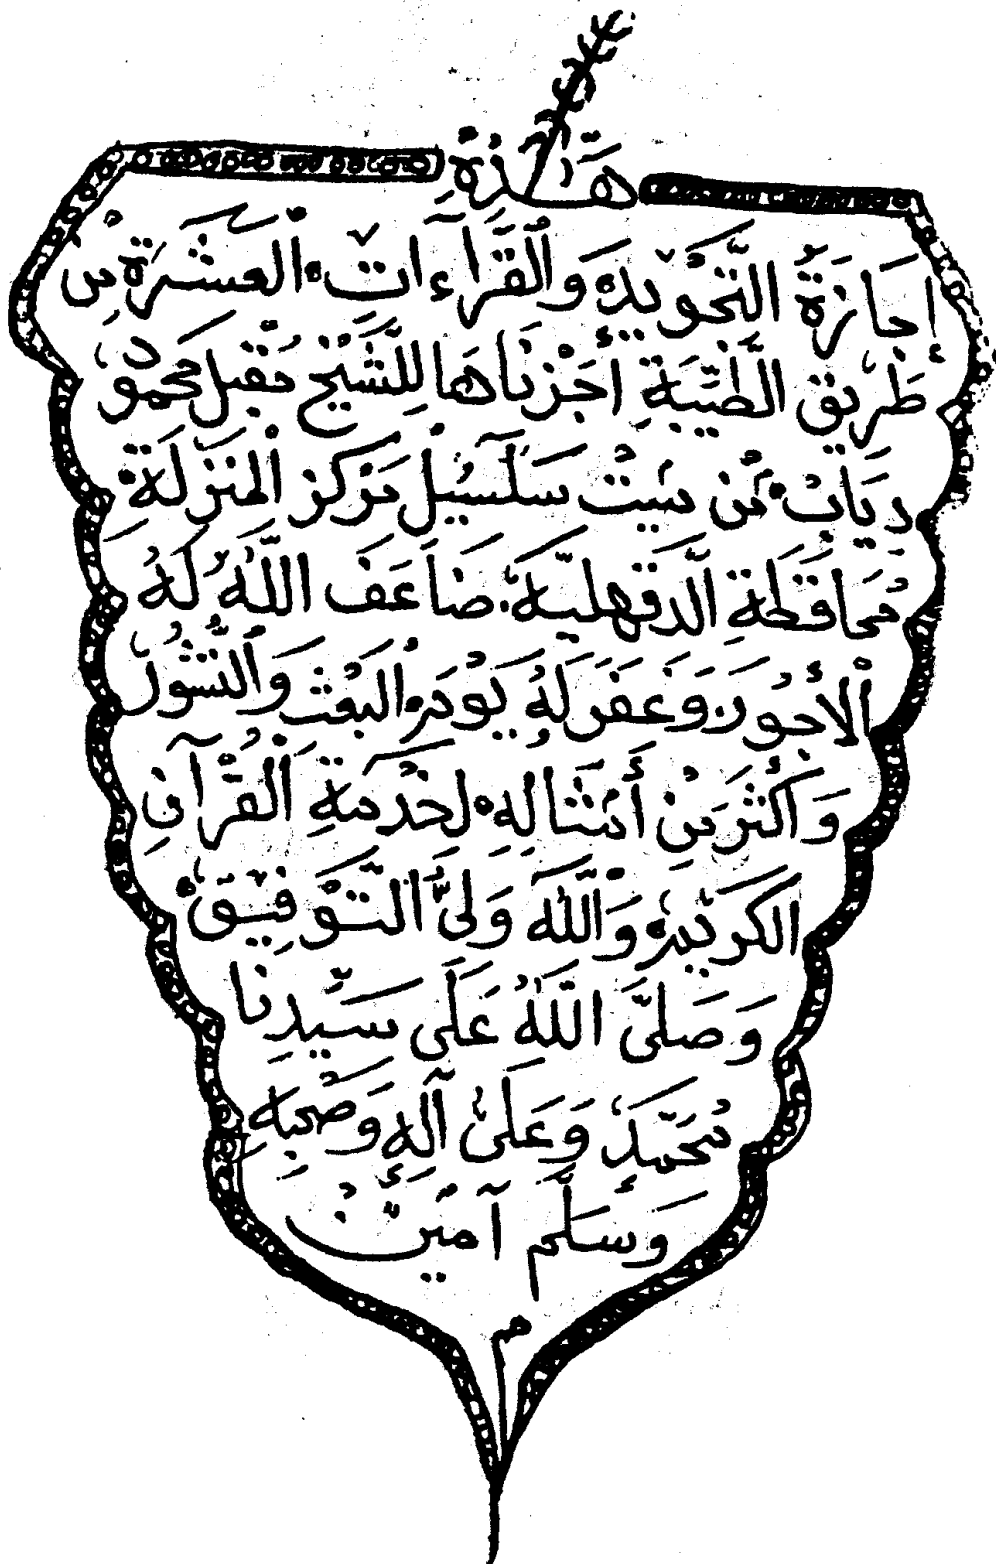 هَذِهِ
إِجَازَةُ التَّجْوِيدِ وَالْقِرَاءَاتِ الْعَشْرَةِ مِنْ
طَرِيقِ الطَّيِّبَةِ أَجَزْنَاهَا لِلشَّيْخِ مُقْبِل مُحَمَّد
دِيَابْ مِنْ مِيتْ سَلْسِيلْ مَرْكَز الْمَنْزِلَةِ
مُحَافَظَةِ الدَّقَهْلِيَّةِ ضَاعَفَ اللهُ لَهُ
الْأُجُورَ وَغَفَرَ لَهُ يَوْمَ الْبَعْثِ وَالنُّشُورِ
وَأَكْثَرَ مِنْ أَمْثَالِهِ لِخِدْمَةِ الْقُرْآنِ
الْكَرِيمِ وَاللهُ وَلِيُّ التَّوْفِيقِ
وَصَلَّى اللهُ عَلَى سَيِّدِنَا
مُحَمَّدٍ وَعَلَى آلِهِ وَصَحْبِهِ
وَسَلَّم آمِينْ
م